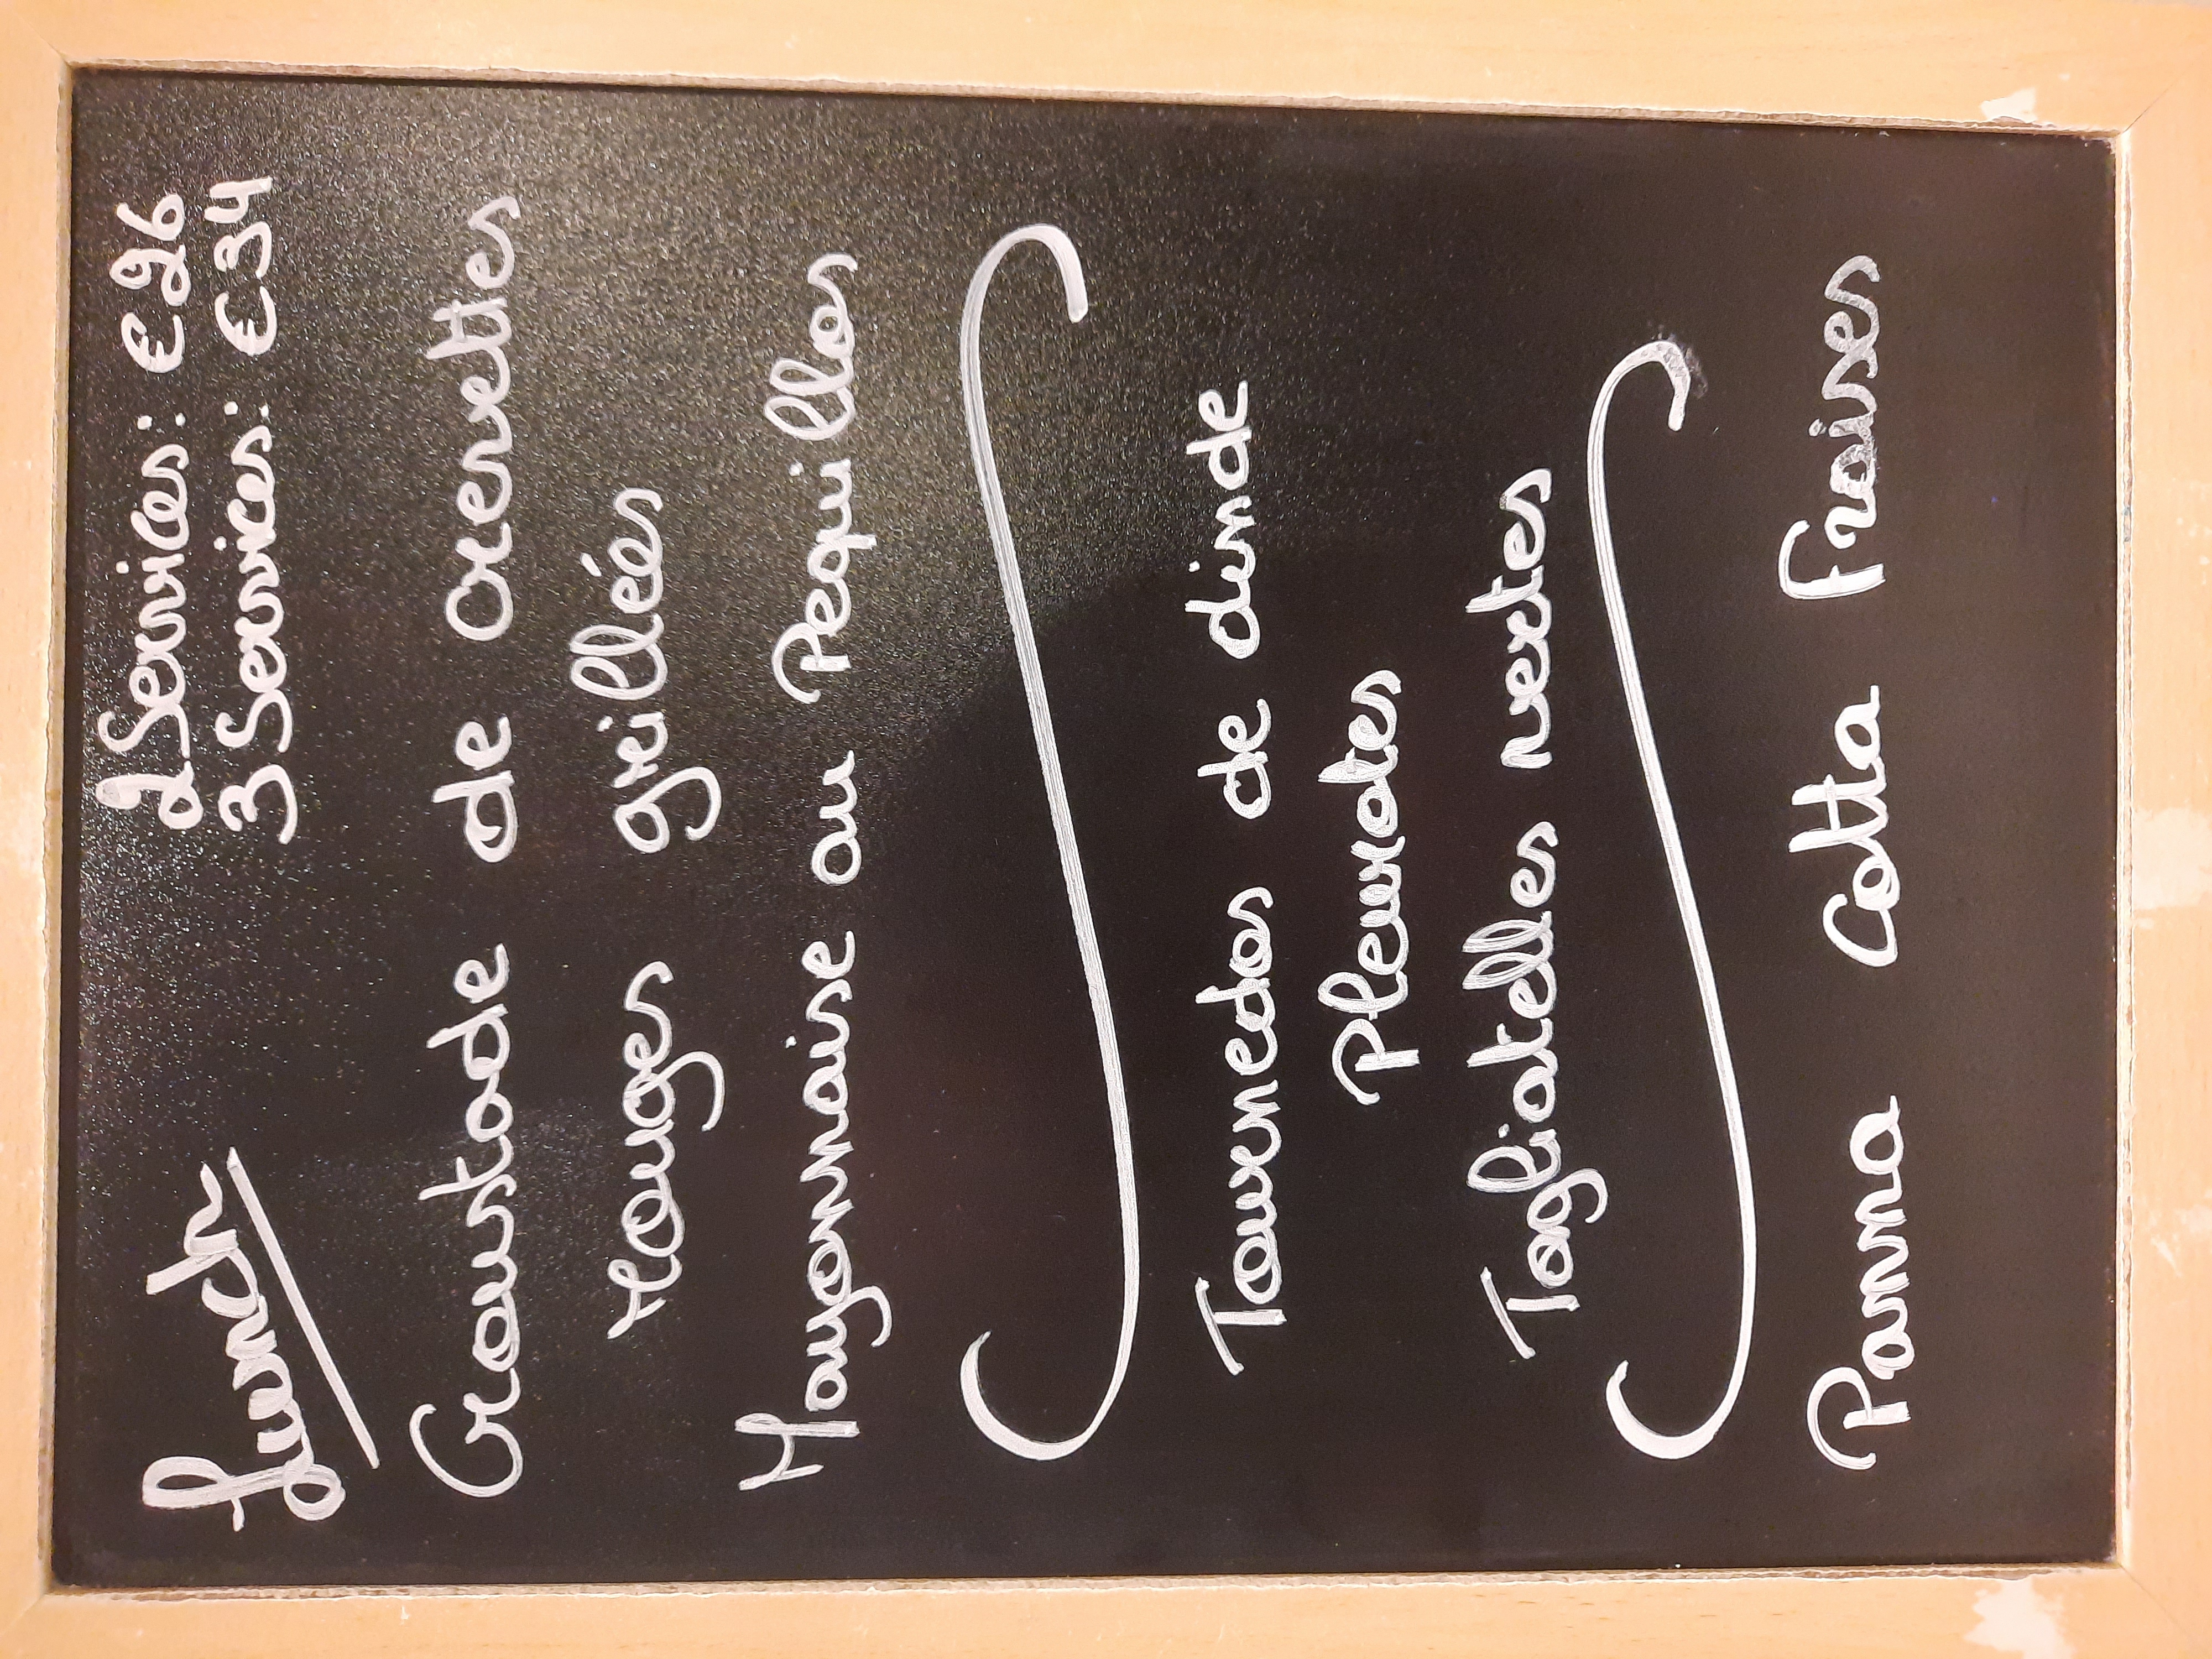 Lunch
2 Services: € 26
3 Services: € 34
Croustade de crevettes
rouges grillées
Mayonnaise au Pequillos
Tournedos de dinde
Pleurotes
Tagliatelles vertes
Panna Cotta Fraises